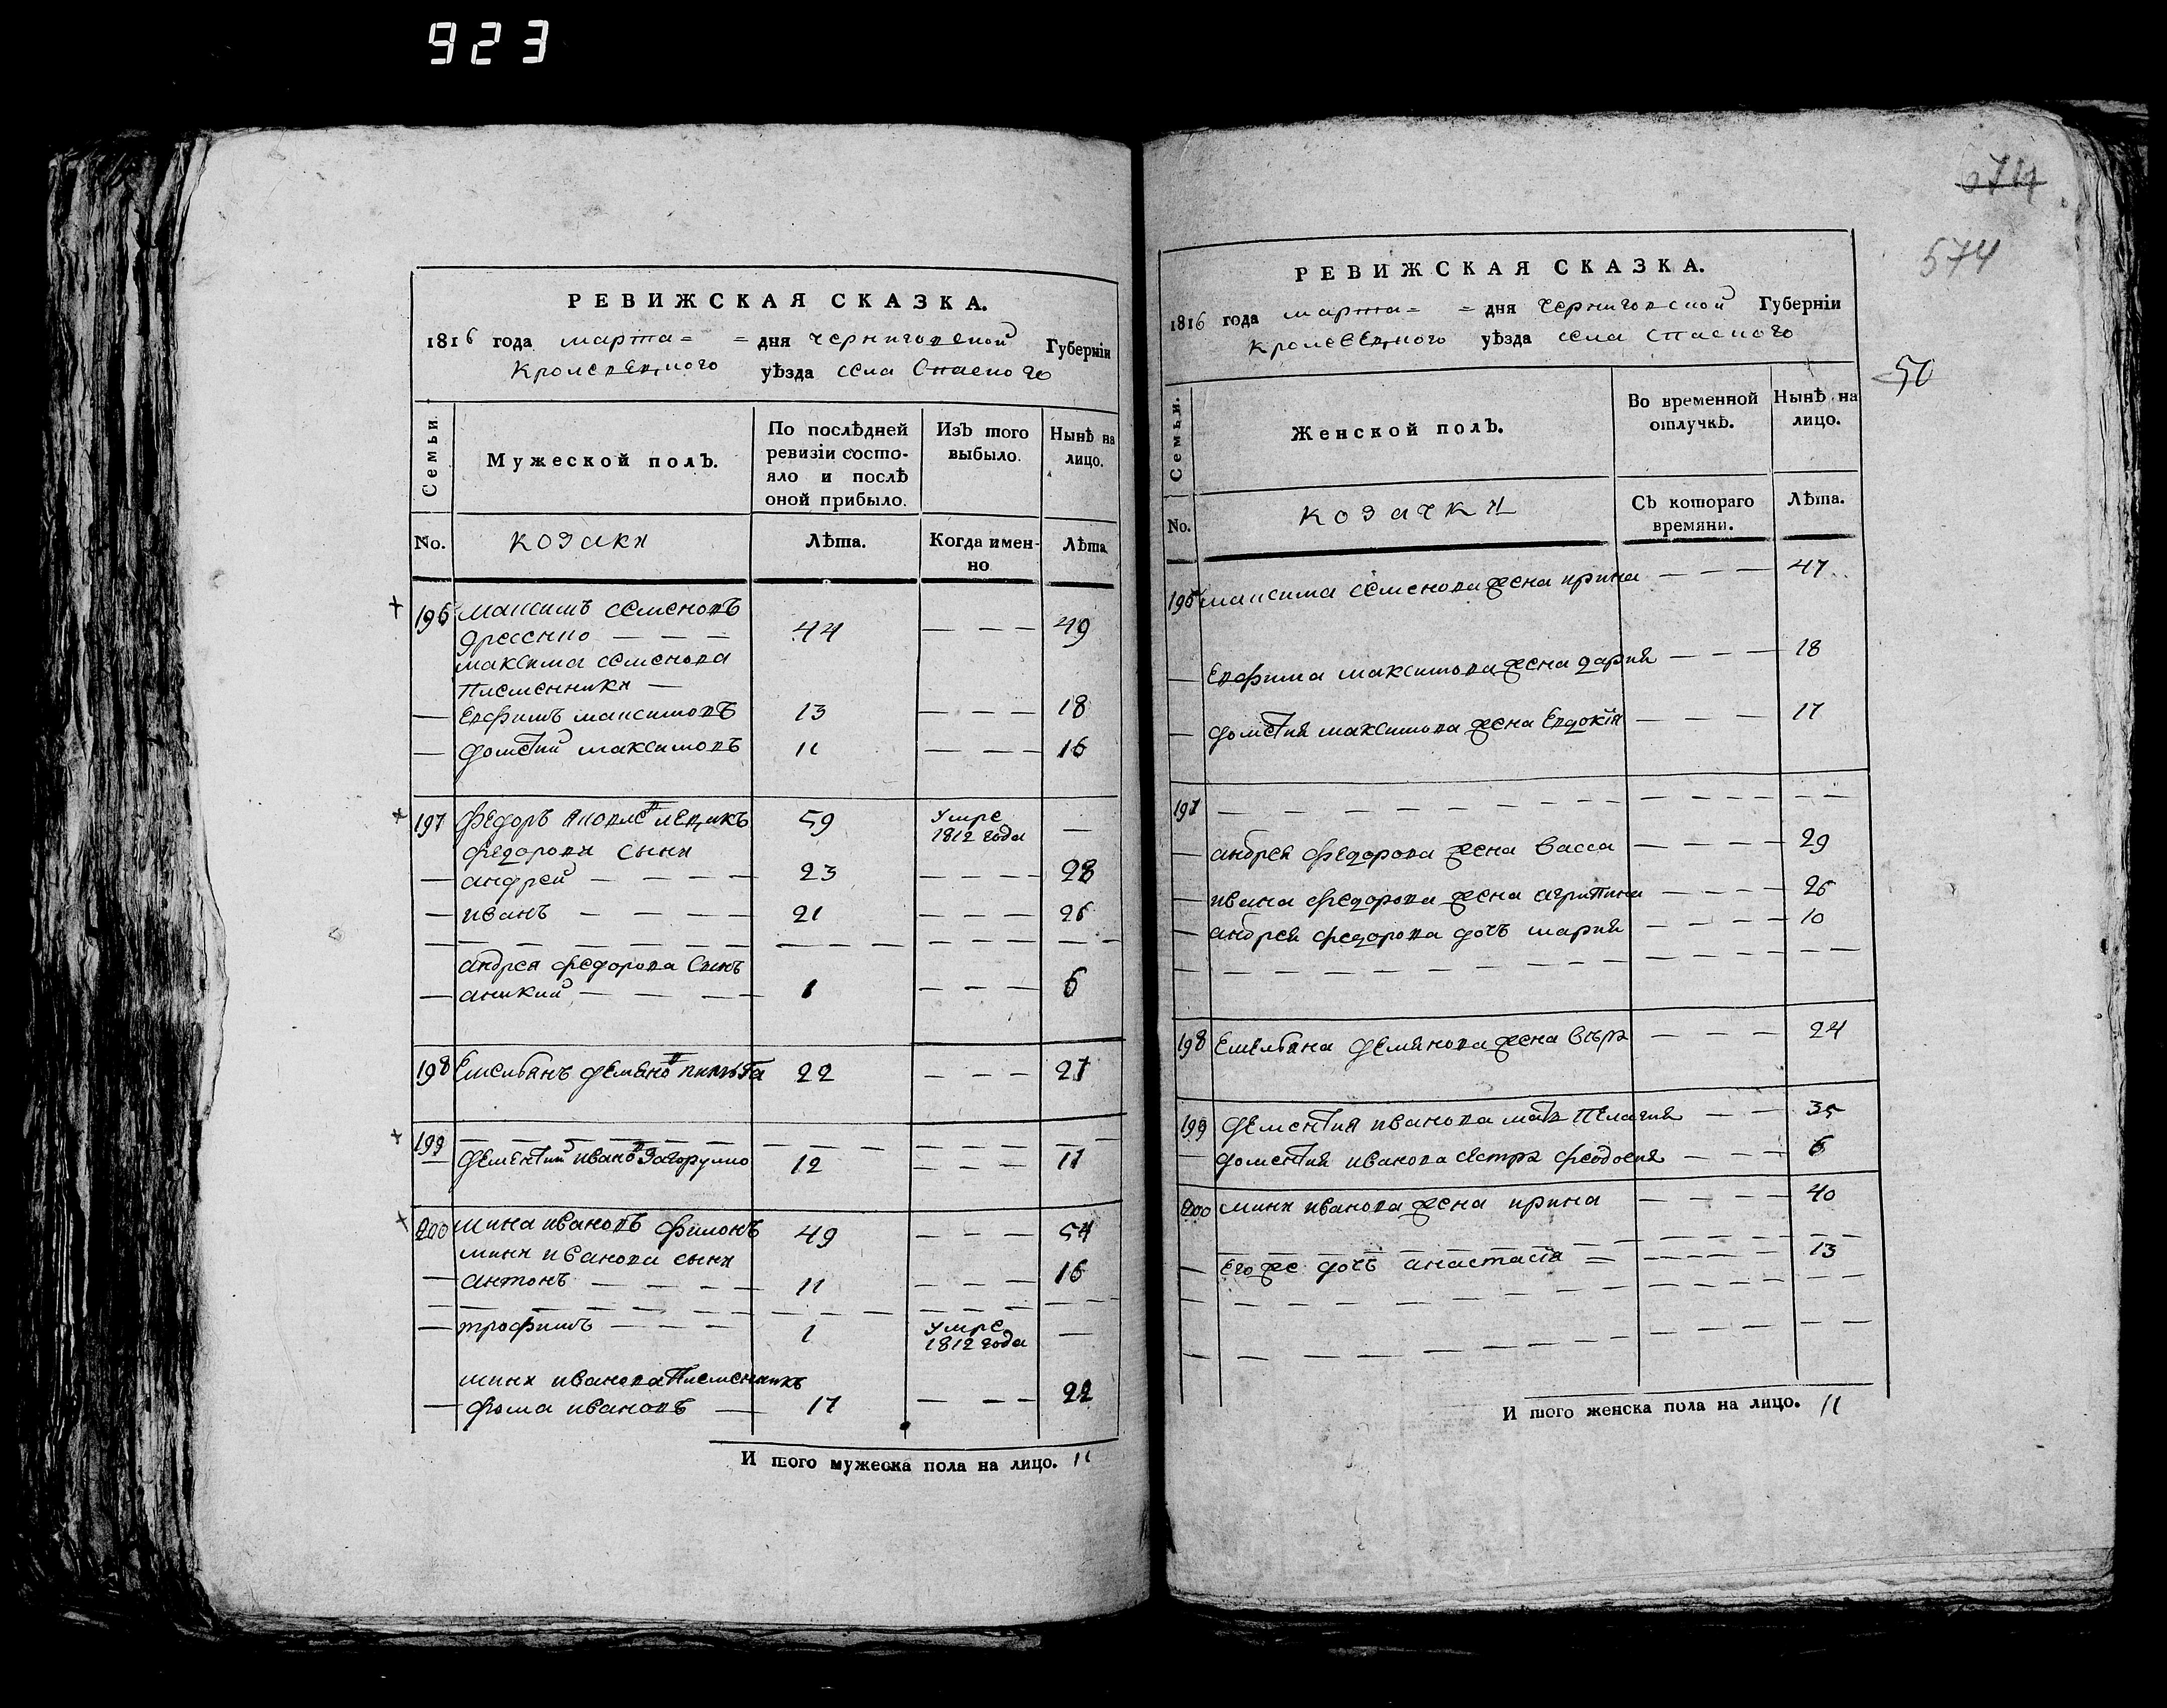 923
РЕВИЖСКАЯ СКАЗКА.
1816 года марта = = дня черниговской Губерніи
Кролевецкого уѣзда села Спаского
Семьи.
Мужеской полъ.
По послѣдней ревизіи состо-
яло и послѣ
оной прибыло.
Изъ того
выбыло.
Нынѣ на
лицо.
No.
козаки
Лѣта.
Когда имен-
но
Лѣта
196 максимъ семеновъ
44 — — — 49
максима семенова
племенники —
— Евфимъ максимовъ 13 — — — 18
— дометий максимовъ 11 — — — 16
197 федоръ 59 умре 1812 года —
федорова сыни
— андрей — — — — 23 — — — — 28
— иванъ — — — — 21 — — — 26
андрея федорова сынъ
— аникий — — — — 1 — — — 6
198 Емельянъ демяновъ 22 — — — 27
199 — — — — — — —
— дементий ивановъ Загорулко 12 — — — 17
200 мина ивановъ филонъ 49 — — — 54
мини иванова сыни
— антонъ — — — — 11 — — — 16
— трофимъ — — — 1 умре 1812 года —
мини иванова племенникъ
— фома ивановъ — 17 — — — 22
И того мужеска пола на лицо. 11
674
574
50
РЕВИЖСКАЯ СКАЗКА.
1816 года марта = = дня черниговской Губерніи
Кролевецкого уѣзда села Спаского
Семьи.
Женской полъ.
Во временной
отлучкѣ.
Нынѣ на
лицо.
No.
козачки
Съ котораго
времяни.
Лѣта.
196 максима семенова жена ирина — — — 47
— Евфима максимова жена дария — — — 18
— дометия максимова жена Евдокія — — — 17
197 — — — — — — — —
— андрея федорова жена васса — — — — 29
— ивана федорова жена агрипина — — — — 26
— андрея федорова дочъ мария — — — — 10
198 Емельяна демянова жена вѣра — — — 24
199 дементия иванова матъ пелагия — — 35
— доментия иванова сестра феодосия — — — 6
200 мини иванова жена ирина — — — — 40
— его же дочъ анастасія = — — — — 13
И того женска пола на лицо. 11